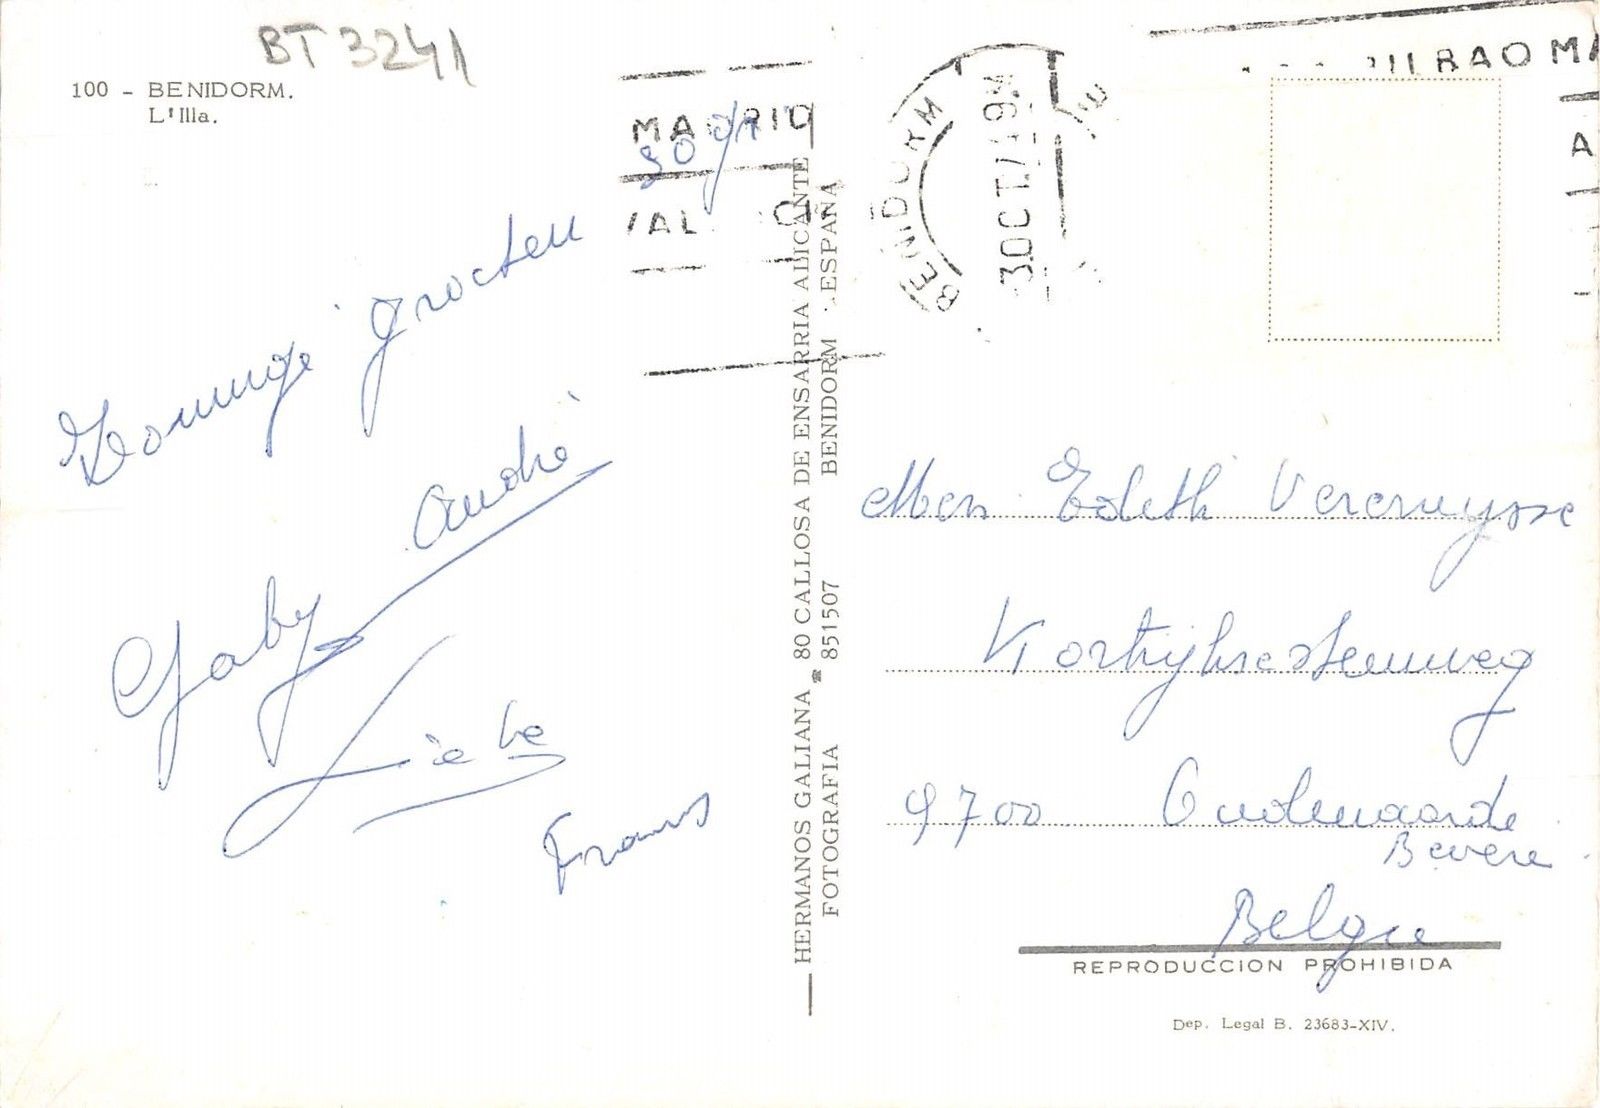 BT 3241
100 - BENIDORM.
L'Illa.
MADRID
BENIDORM
30 OCT.
BILBAO MA
Zonnige groeten
André
Gaby
Frans
HERMANOS GALIANA ☎ 80 CALLOSA DE ENSARRIA ALICANTE
FOTOGRAFIA 851507 BENIDORM - ESPAÑA
Men Edith Vercruysse
Kortrijksesteenweg
9700 Oudenaarde
Bevere
Belgie
REPRODUCCION PROHIBIDA
Dep. Legal B. 23683-XIV.